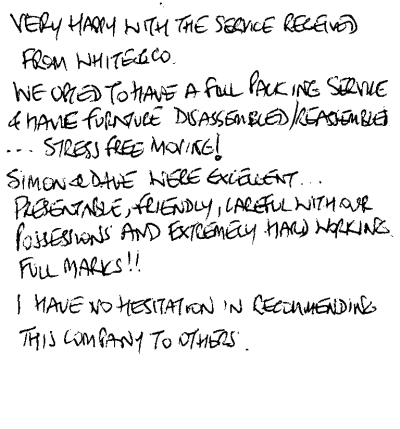 VERY HAPPY WITH THE SERVICE RECEIVED
FROM WHITE & CO.
WE OPTED TO HAVE A FULL PACKING SERVICE
& HAVE FURNITURE DISASSEMBLED/REASSEMBLED
... STRESS FREE MOVING!
SIMON & DAVE WERE EXCELLENT...
PRESENTABLE, FRIENDLY, CAREFUL WITH OUR
POSSESSIONS AND EXTREMELY HARD WORKING.
FULL MARKS!!
I HAVE NO HESITATION IN RECOMMENDING
THIS COMPANY TO OTHERS.